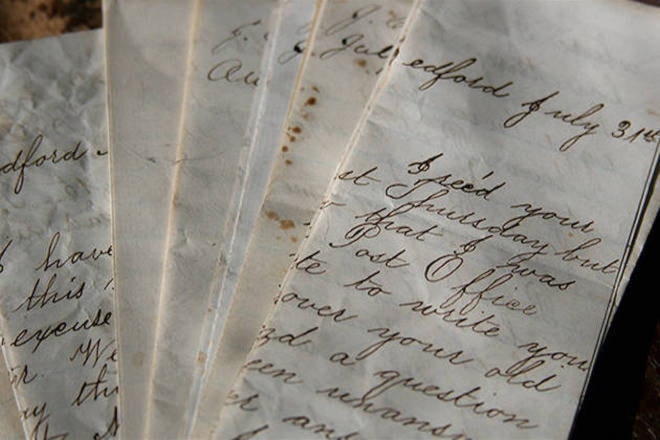 dford
I have
this
excuse
r. We
y th
J.
Au
J. Jul
edford July 31st
I rec'd your
st Thursday but
that I was
Post Office
te to write you
over your old
nd a question
een unansw
er an